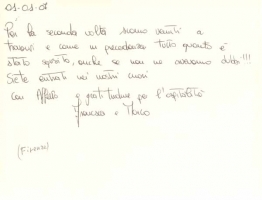 01.01.07
Per la seconda volta siamo venuti a
trovarvi e come in precedenza tutto quanto è
stato squisito, anche se non ne avevamo dubbi!!!
Siete entrati nei nostri cuori
con affetto e gratitudine per l'ospitalità
Francesca e Marco
(Firenze)